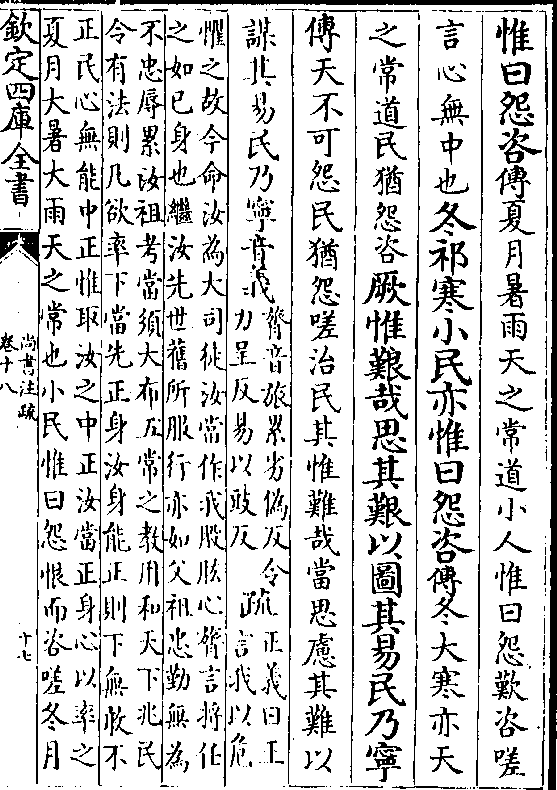 惟曰怨咨傳夏月暑雨天之常道小人惟曰怨歎咨嗟
言心無中也冬祁寒小民亦惟曰怨咨傳冬大寒亦天
之常道民猶怨咨厥惟艱哉思其艱以圖其易民乃寧
傳天不可怨民猶怨嗟治民其惟難哉當思慮其難以
謀其易民乃寧音義膂音旅累劣偽反令
力呈反易以豉反疏正義曰王
言我以危
懼之故今命汝為大司徒汝當作我股肱心膂言將任
之如已身也繼汝先世舊所服行亦如父祖忠勤無為
不忠辱累汝祖考當須大布五常之教用和天下兆民
令有法則凡欲率下當先正身汝身能正則下無敢不
正民心無能中正惟取汝之中正汝當正身心以率之
夏月大暑大雨天之常也小民惟曰怨恨而咨嗟冬月
欽定四庫全書
尚書注疏
卷十八
十七